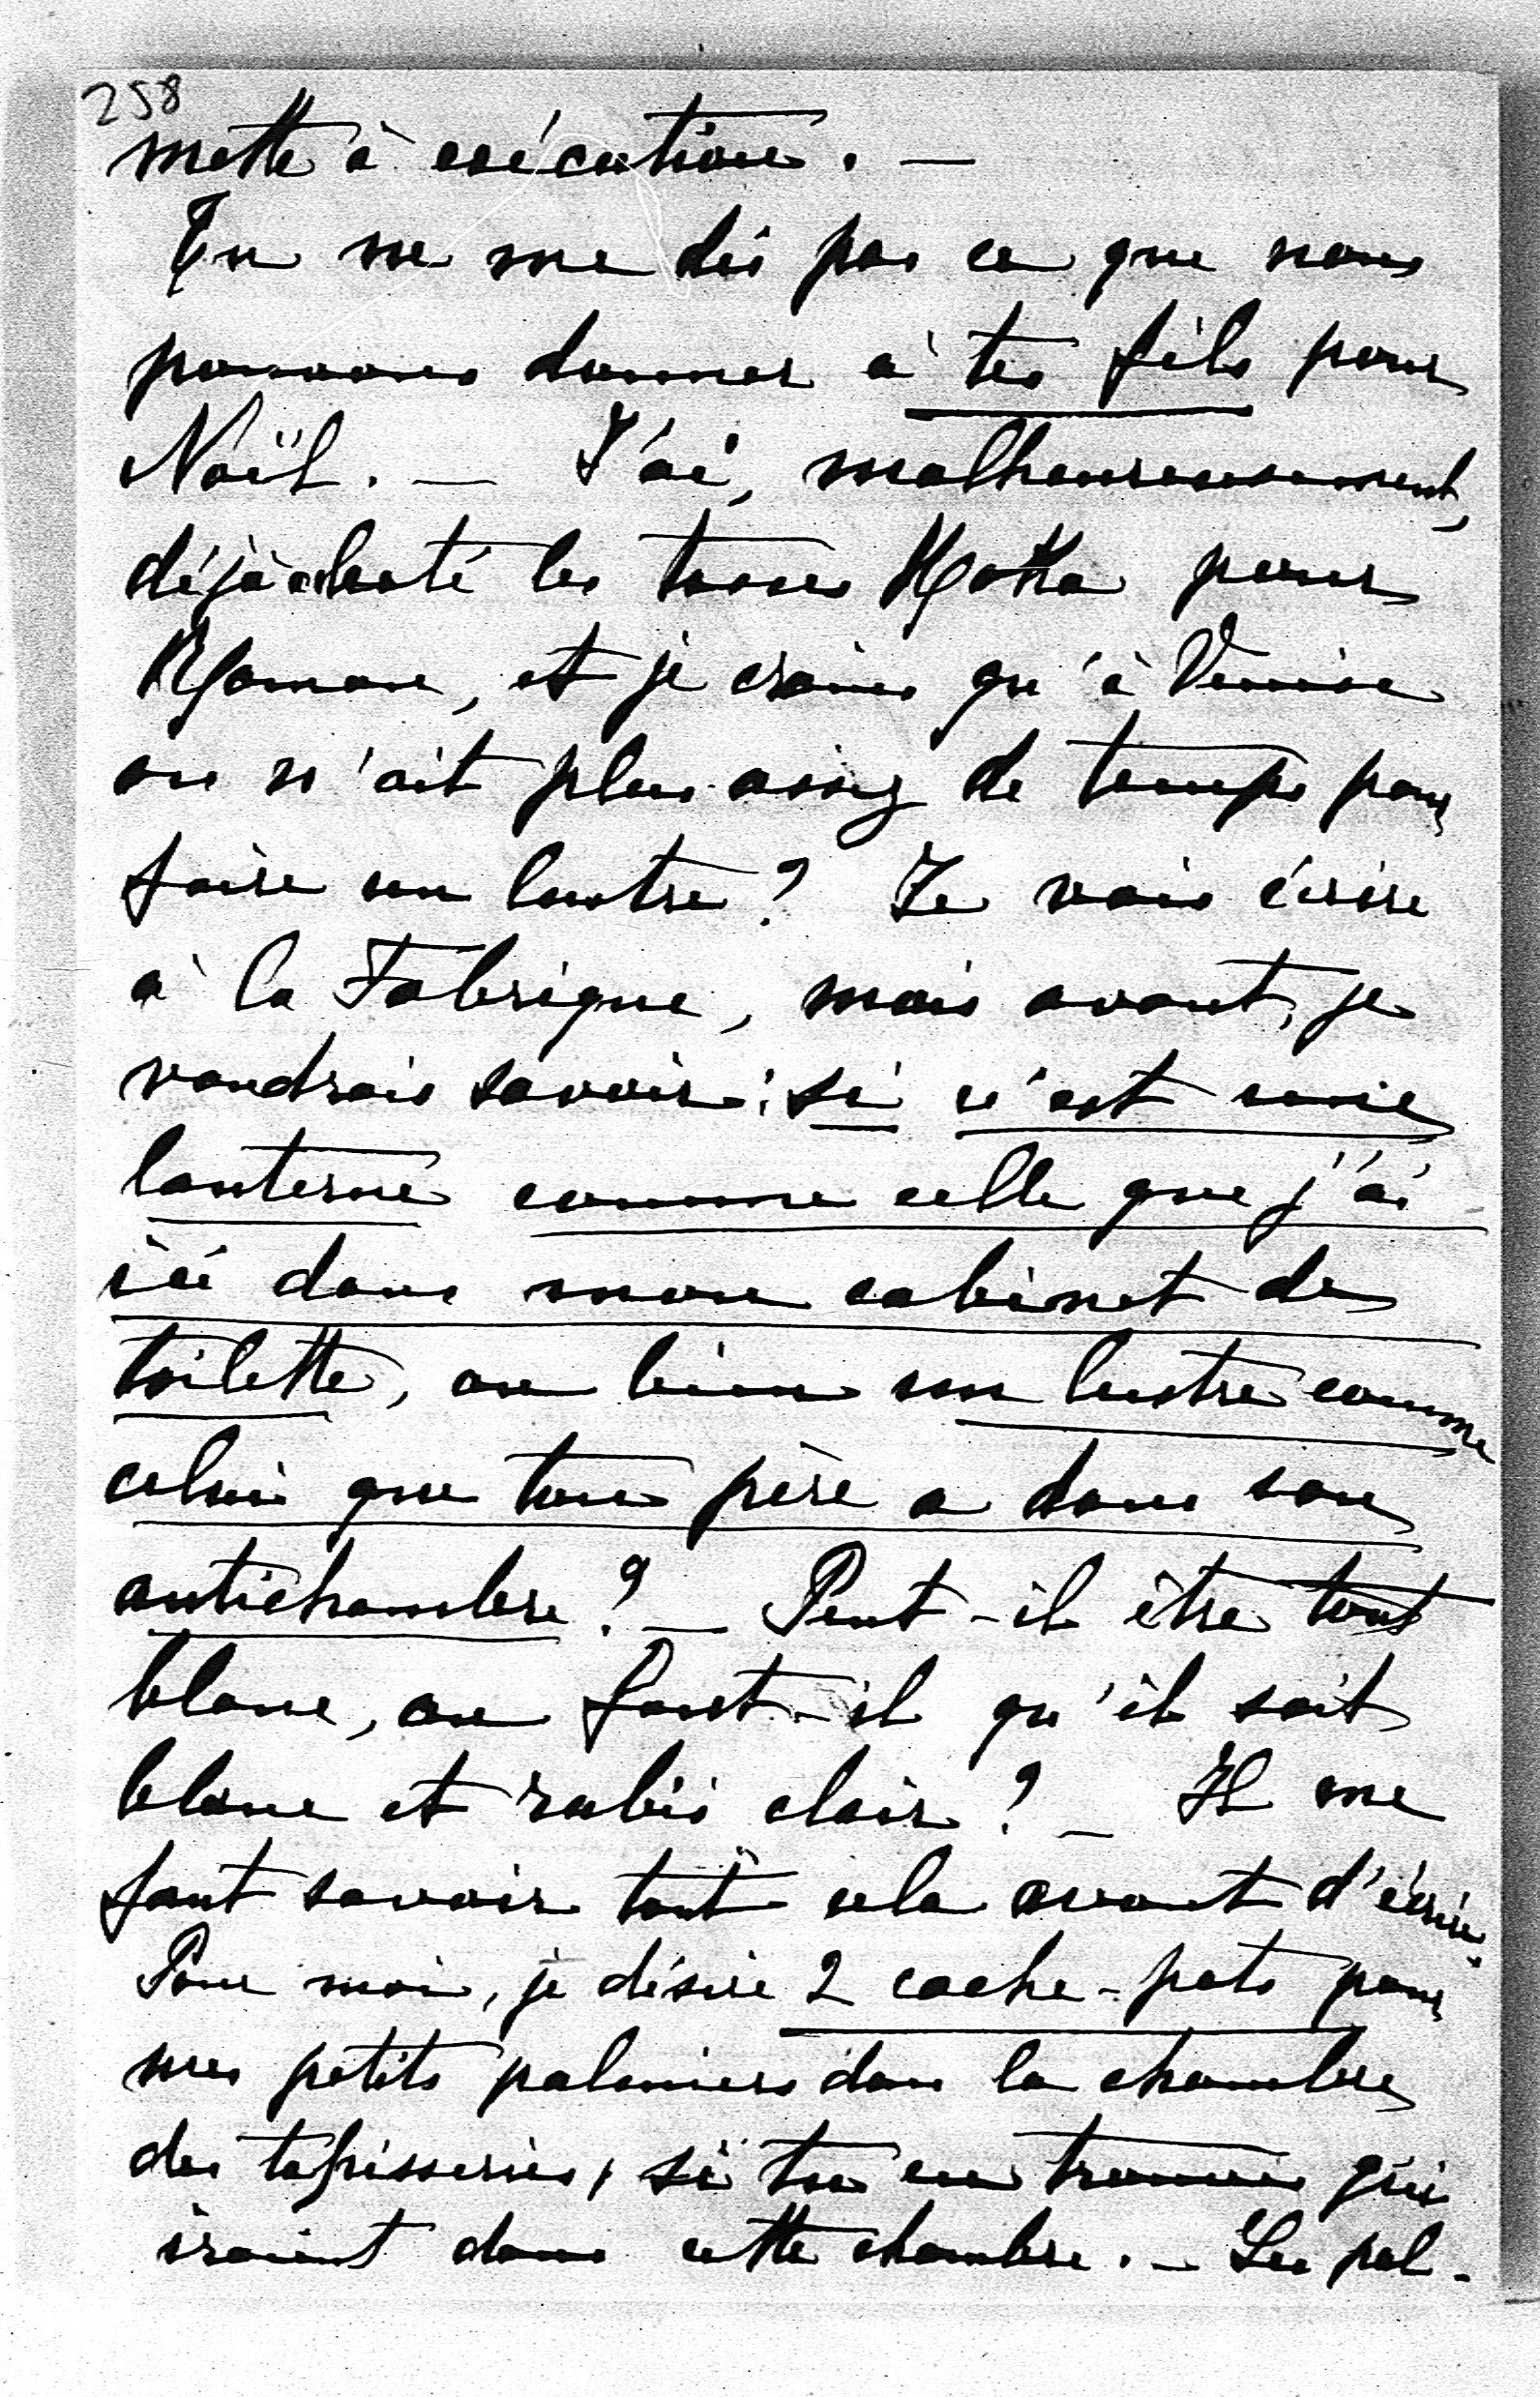 258
mette à exécution. —
Tu ne me dis pas ce que nous
pouvons donner à tes fils pour
Noël. — J'ai, malheureusement,
déjà acheté les tasses Moka pour
Maman, et je crains qu'à Venise
on n'ait plus assez de temps pour
faire un lustre? Je vais écrire
à la Fabrique, mais avant, je
voudrais savoir: si c'est une
lanterne comme celle que j'ai
ici dans mon cabinet de
toilette, ou bien un lustre comme
celui que ton père a dans son
antichambre? — Peut-il être tout
blanc, ou faut-il qu'il soit
blanc et rubis clair? — Il me
faut savoir tout cela avant d'écrire.
Pour moi, je désire 2 cache-pots pour
mes petits palmiers dans la chambre
des tapisseries, si tu en trouves qui
iraient dans cette chambre. — Les pal-